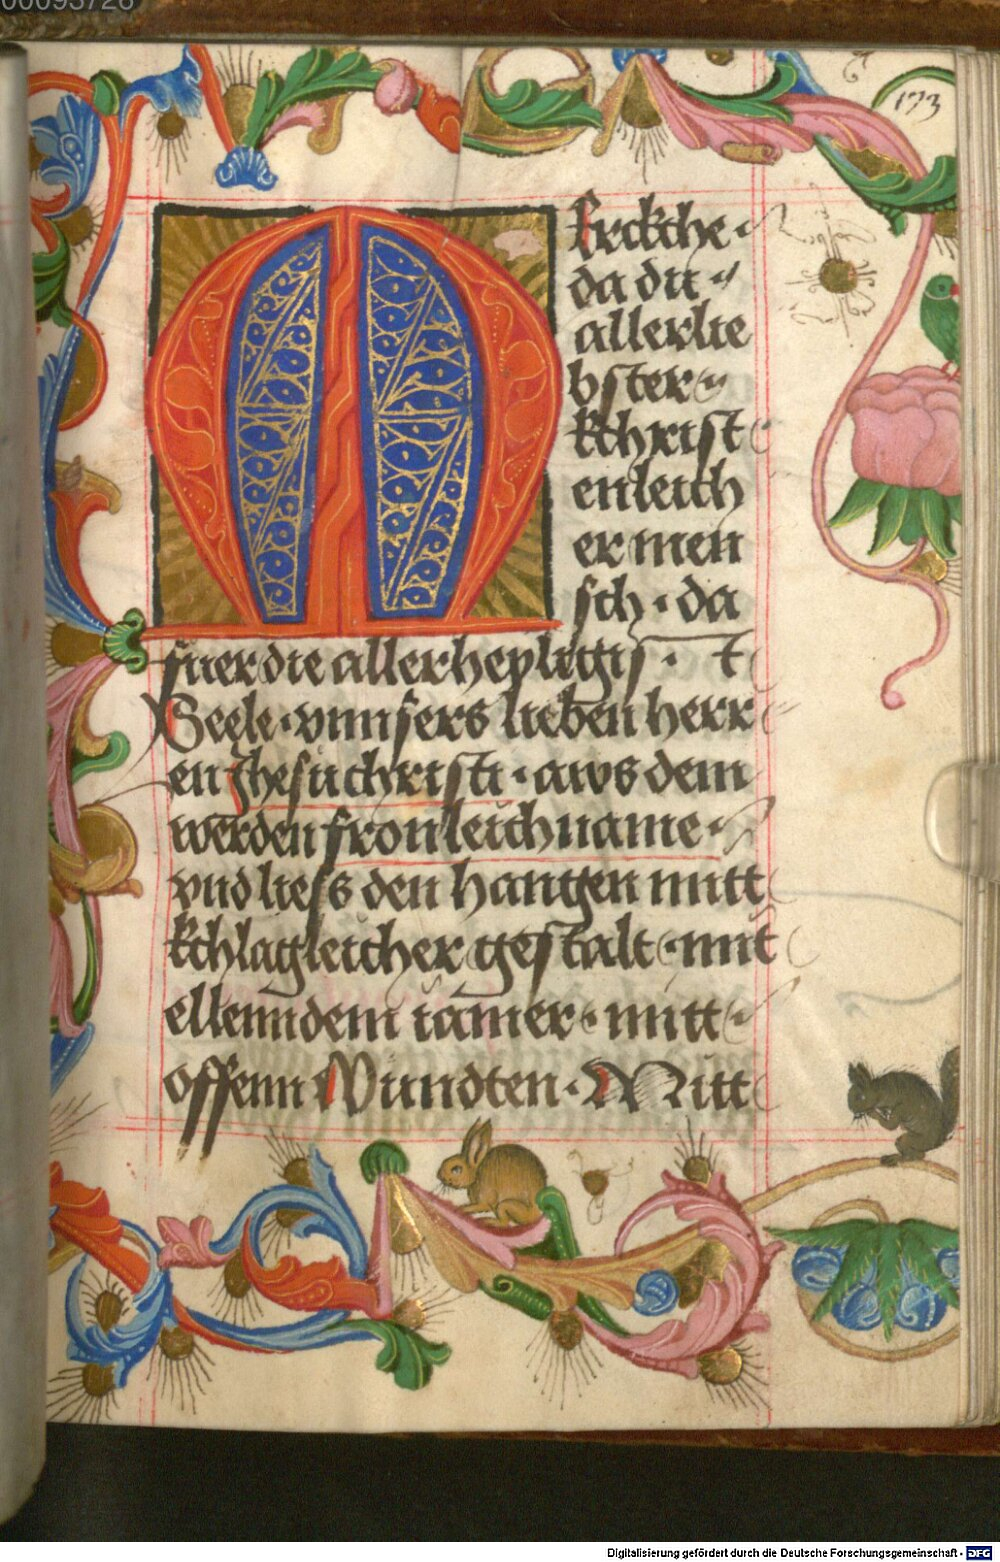 00093728
173
Merckche·
da du
allerlie
bster
kchrist
enleich
er men
sch · da
fuer die allerheyligis · t
Seele · vnnsers lieben herr
en Jhesu christi · aws dem
werden fronleichname ·
vnd liess den hangen mitt
kchlagleicher gestalt · mit
ellenndem iamer · mitt
offenn Wundten · Mitt
Digitalisierung gefördert durch die Deutsche Forschungsgemeinschaft - DFG